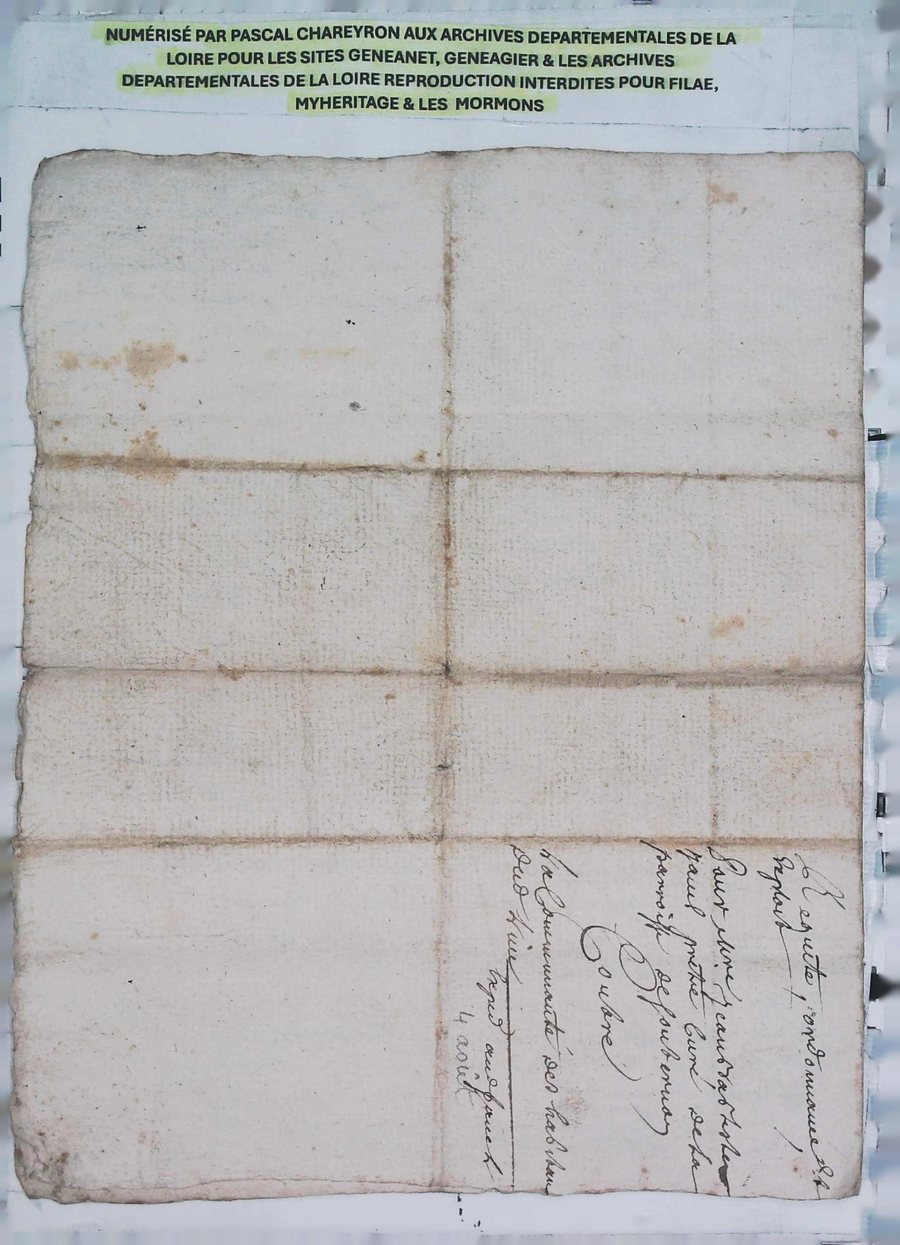 NUMÉRISÉ PAR PASCAL CHAREYRON AUX ARCHIVES DEPARTEMENTALES DE LA
LOIRE POUR LES SITES GENEANET, GENEAGIER & LES ARCHIVES
DEPARTEMENTALES DE LA LOIRE REPRODUCTION INTERDITES POUR FILAE,
MYHERITAGE & LES MORMONS
Requete, ordonnance, et
Exploit
Pour Mre Jean Baptiste
prêtre Curé de la
parroisse de
Contre
La Communauté des habitan
dud lieu
4 août